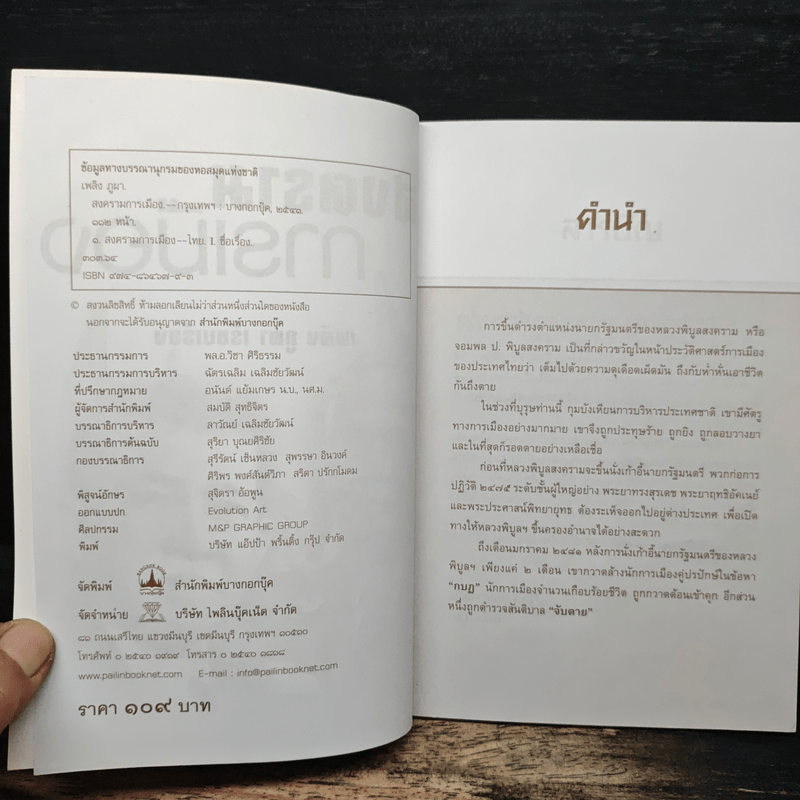 ข้อมูลทางบรรณานุกรมของหอสมุดแห่งชาติ
เพลิง ภูผา.
สงครามการเมือง.--กรุงเทพฯ : บางกอกบุ๊ค, ๒๕๔๓.
๑๑๒ หน้า.
๑. สงครามการเมือง--ไทย. I. ชื่อเรื่อง.
๓๐๓.๖๔
ISBN ๙๗๔-๘๖๔๖๗-๙-๓
© สงวนลิขสิทธิ์ ห้ามลอกเลียนไม่ว่าส่วนหนึ่งส่วนใดของหนังสือ
นอกจากจะได้รับอนุญาตจาก สำนักพิมพ์บางกอกบุ๊ค
ประธานกรรมการ พล.อ.วิชา ศิริธรรม
ประธานกรรมการบริหาร ฉัตรเฉลิม เฉลิมชัยวัฒน์
ที่ปรึกษากฎหมาย อนันต์ แย้มเกษร น.บ., นศ.ม.
ผู้จัดการสำนักพิมพ์ สมบัติ สุทธิจิตร
บรรณาธิการบริหาร ลาวัณย์ เฉลิมชัยวัฒน์
บรรณาธิการต้นฉบับ สุริยา บุณยศิริชัย
กองบรรณาธิการ สุรีรัตน์ เซ็นหลวง สุพรรษา อินวงค์
ศิริพร พงศ์สันติวิภา สริตา ปรักกโมดม
พิสูจน์อักษร สุจิตรา อ้อพูน
ออกแบบปก Evolution Art
ศิลปกรรม M&P GRAPHIC GROUP
พิมพ์ บริษัท แอ๊ปป้า พริ้นติ้ง กรุ๊ป จำกัด
จัดพิมพ์ สำนักพิมพ์บางกอกบุ๊ค
จัดจำหน่าย บริษัท ไพลินบุ๊คเน็ต จำกัด
๘๑ ถนนเสรีไทย แขวงมีนบุรี เขตมีนบุรี กรุงเทพฯ ๑๐๕๑๐
โทรศัพท์ ๐ ๒๕๔๐ ๑๙๑๙ โทรสาร ๐ ๒๕๔๐ ๑๘๑๘
www.pailinbooknet.com E-mail : info@pailinbooknet.com
ราคา ๑๐๙ บาท
คำนำ
การขึ้นดำรงตำแหน่งนายกรัฐมนตรีของหลวงพิบูลสงคราม หรือ
จอมพล ป. พิบูลสงคราม เป็นที่กล่าวขวัญในหน้าประวัติศาสตร์การเมือง
ของประเทศไทยว่า เต็มไปด้วยความดุเดือดเผ็ดมัน ถึงกับห้ำหั่นเอาชีวิต
กันถึงตาย
ในช่วงที่บุรุษท่านนี้ กุมบังเหียนการบริหารประเทศชาติ เขามีศัตรู
ทางการเมืองอย่างมากมาย เขาจึงถูกประทุษร้าย ถูกยิง ถูกลอบวางยา
และในที่สุดก็รอดตายอย่างเหลือเชื่อ
ก่อนที่หลวงพิบูลสงครามจะขึ้นนั่งเก้าอี้นายกรัฐมนตรี พวกก่อการ
ปฏิวัติ ๒๔๗๕ ระดับชั้นผู้ใหญ่อย่าง พระยาทรงสุรเดช พระยาฤทธิอัคเนย์
และพระประศาสน์พิทยายุทธ ต้องระเห็จออกไปอยู่ต่างประเทศ เพื่อเปิด
ทางให้หลวงพิบูลฯ ขึ้นครองอำนาจได้อย่างสะดวก
ถึงเดือนมกราคม ๒๔๘๑ หลังการนั่งเก้าอี้นายกรัฐมนตรีของหลวง
พิบูลฯ เพียงแค่ ๒ เดือน เขากวาดล้างนักการเมืองคู่ปรปักษ์ในข้อหา
"กบฏ" นักการเมืองจำนวนเกือบร้อยชีวิต ถูกกวาดต้อนเข้าคุก อีกส่วน
หนึ่งถูกตำรวจสันติบาล "จับตาย"